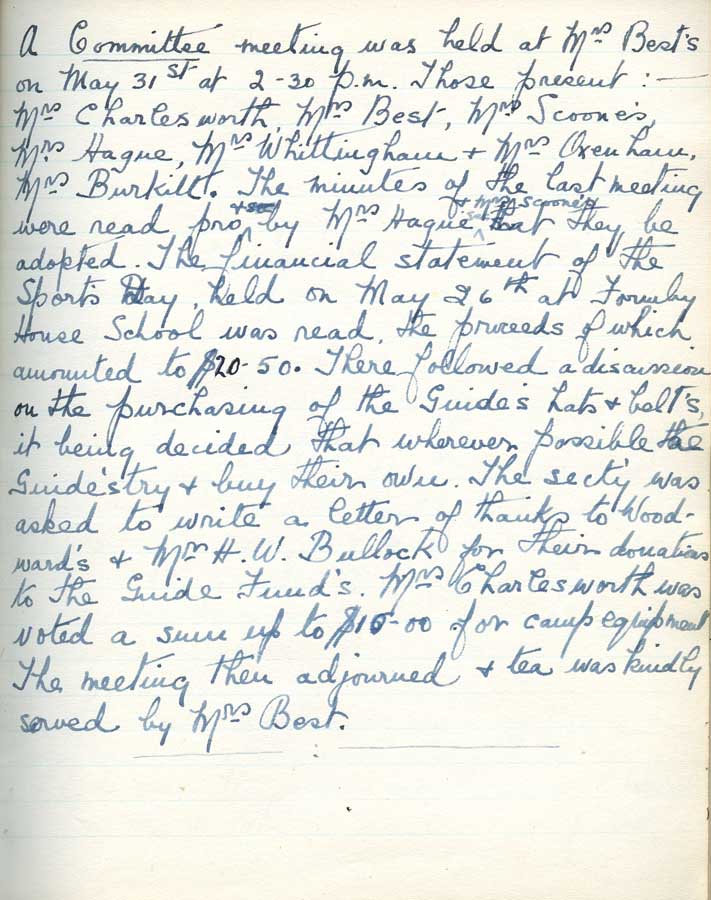 A Committee meeting was held at Mrs Best's
on May 31st at 2-30 p.m. Those present :—
Mrs Charlesworth, Mrs Best, Mrs Scoones,
Mrs Hague, Mrs Whittingham & Mrs Oxenham,
Mrs Burkitt. The minutes of the last meeting
& Mrs Scoones
were read, pro by Mrs Hague that they be
adopted. The financial statement of the
Sports Day, held on May 26th at Formby
House School was read, the proceeds of which
amounted to $20-50. There followed a discussion
on the purchasing of the Guide's hats & belt's,
it being decided that wherever possible the
Guide's try & buy their own. The sect'y was
asked to write a letter of thanks to Wood-
ward's & Mrs H. W. Bullock for their donations
to the Guide Fund's. Mrs Charlesworth was
voted a sum up to $15-00 for camp equipment
The meeting then adjourned & tea was kindly
served by Mrs Best.